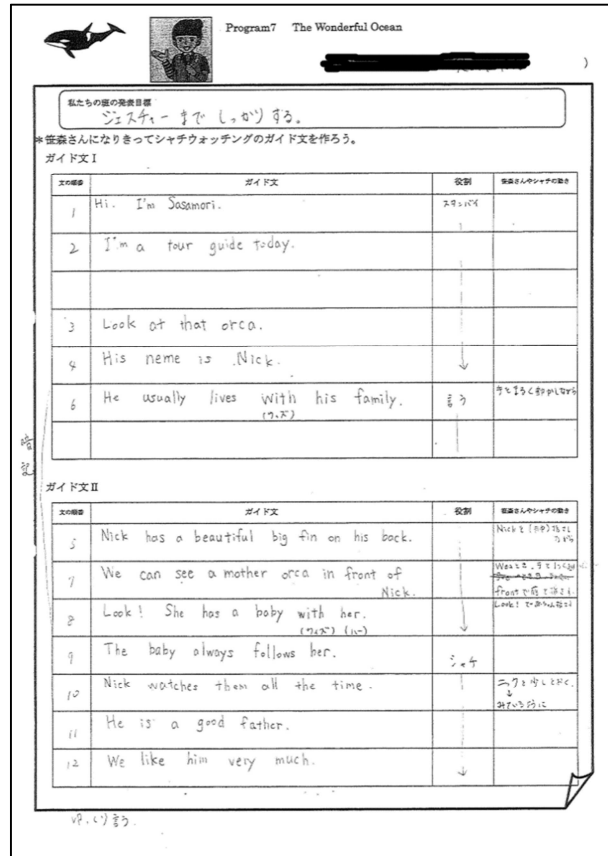 Program7 The Wonderful Ocean
)
私たちの班の発表目標
ジェスチャーまでしっかりする。
*笹森さんになりきってシャチウォッチングのガイド文を作ろう。
ガイド文Ⅰ
文の順番 ガイド文 役割 笹森さんやシャチの動き
1 Hi. I'm Sasamori. スタンバイ
2 I'm a tour guide today.
3 Look at that orca.
4 His neme is Nick.
6 He usually lives with his family. 言う 手をまるく動かしながら
(ウィズ)
暗記
ガイド文Ⅱ
文の順番 ガイド文 役割 笹森さんやシャチの動き
5 Nick has a beautiful big fin on his back. Nickを指さしながら
7 We can see a mother orca in front of Nick.
frontで
8 Look! She has a baby with her. Look!で
(ウィズ) (ハー)
9 The baby always follows her. シャチ
10 Nick watches them all the time. ニックを少しとおく、
↓
みているように
11 He is a good father.
12 We like him very much.
ゆっくり言う。